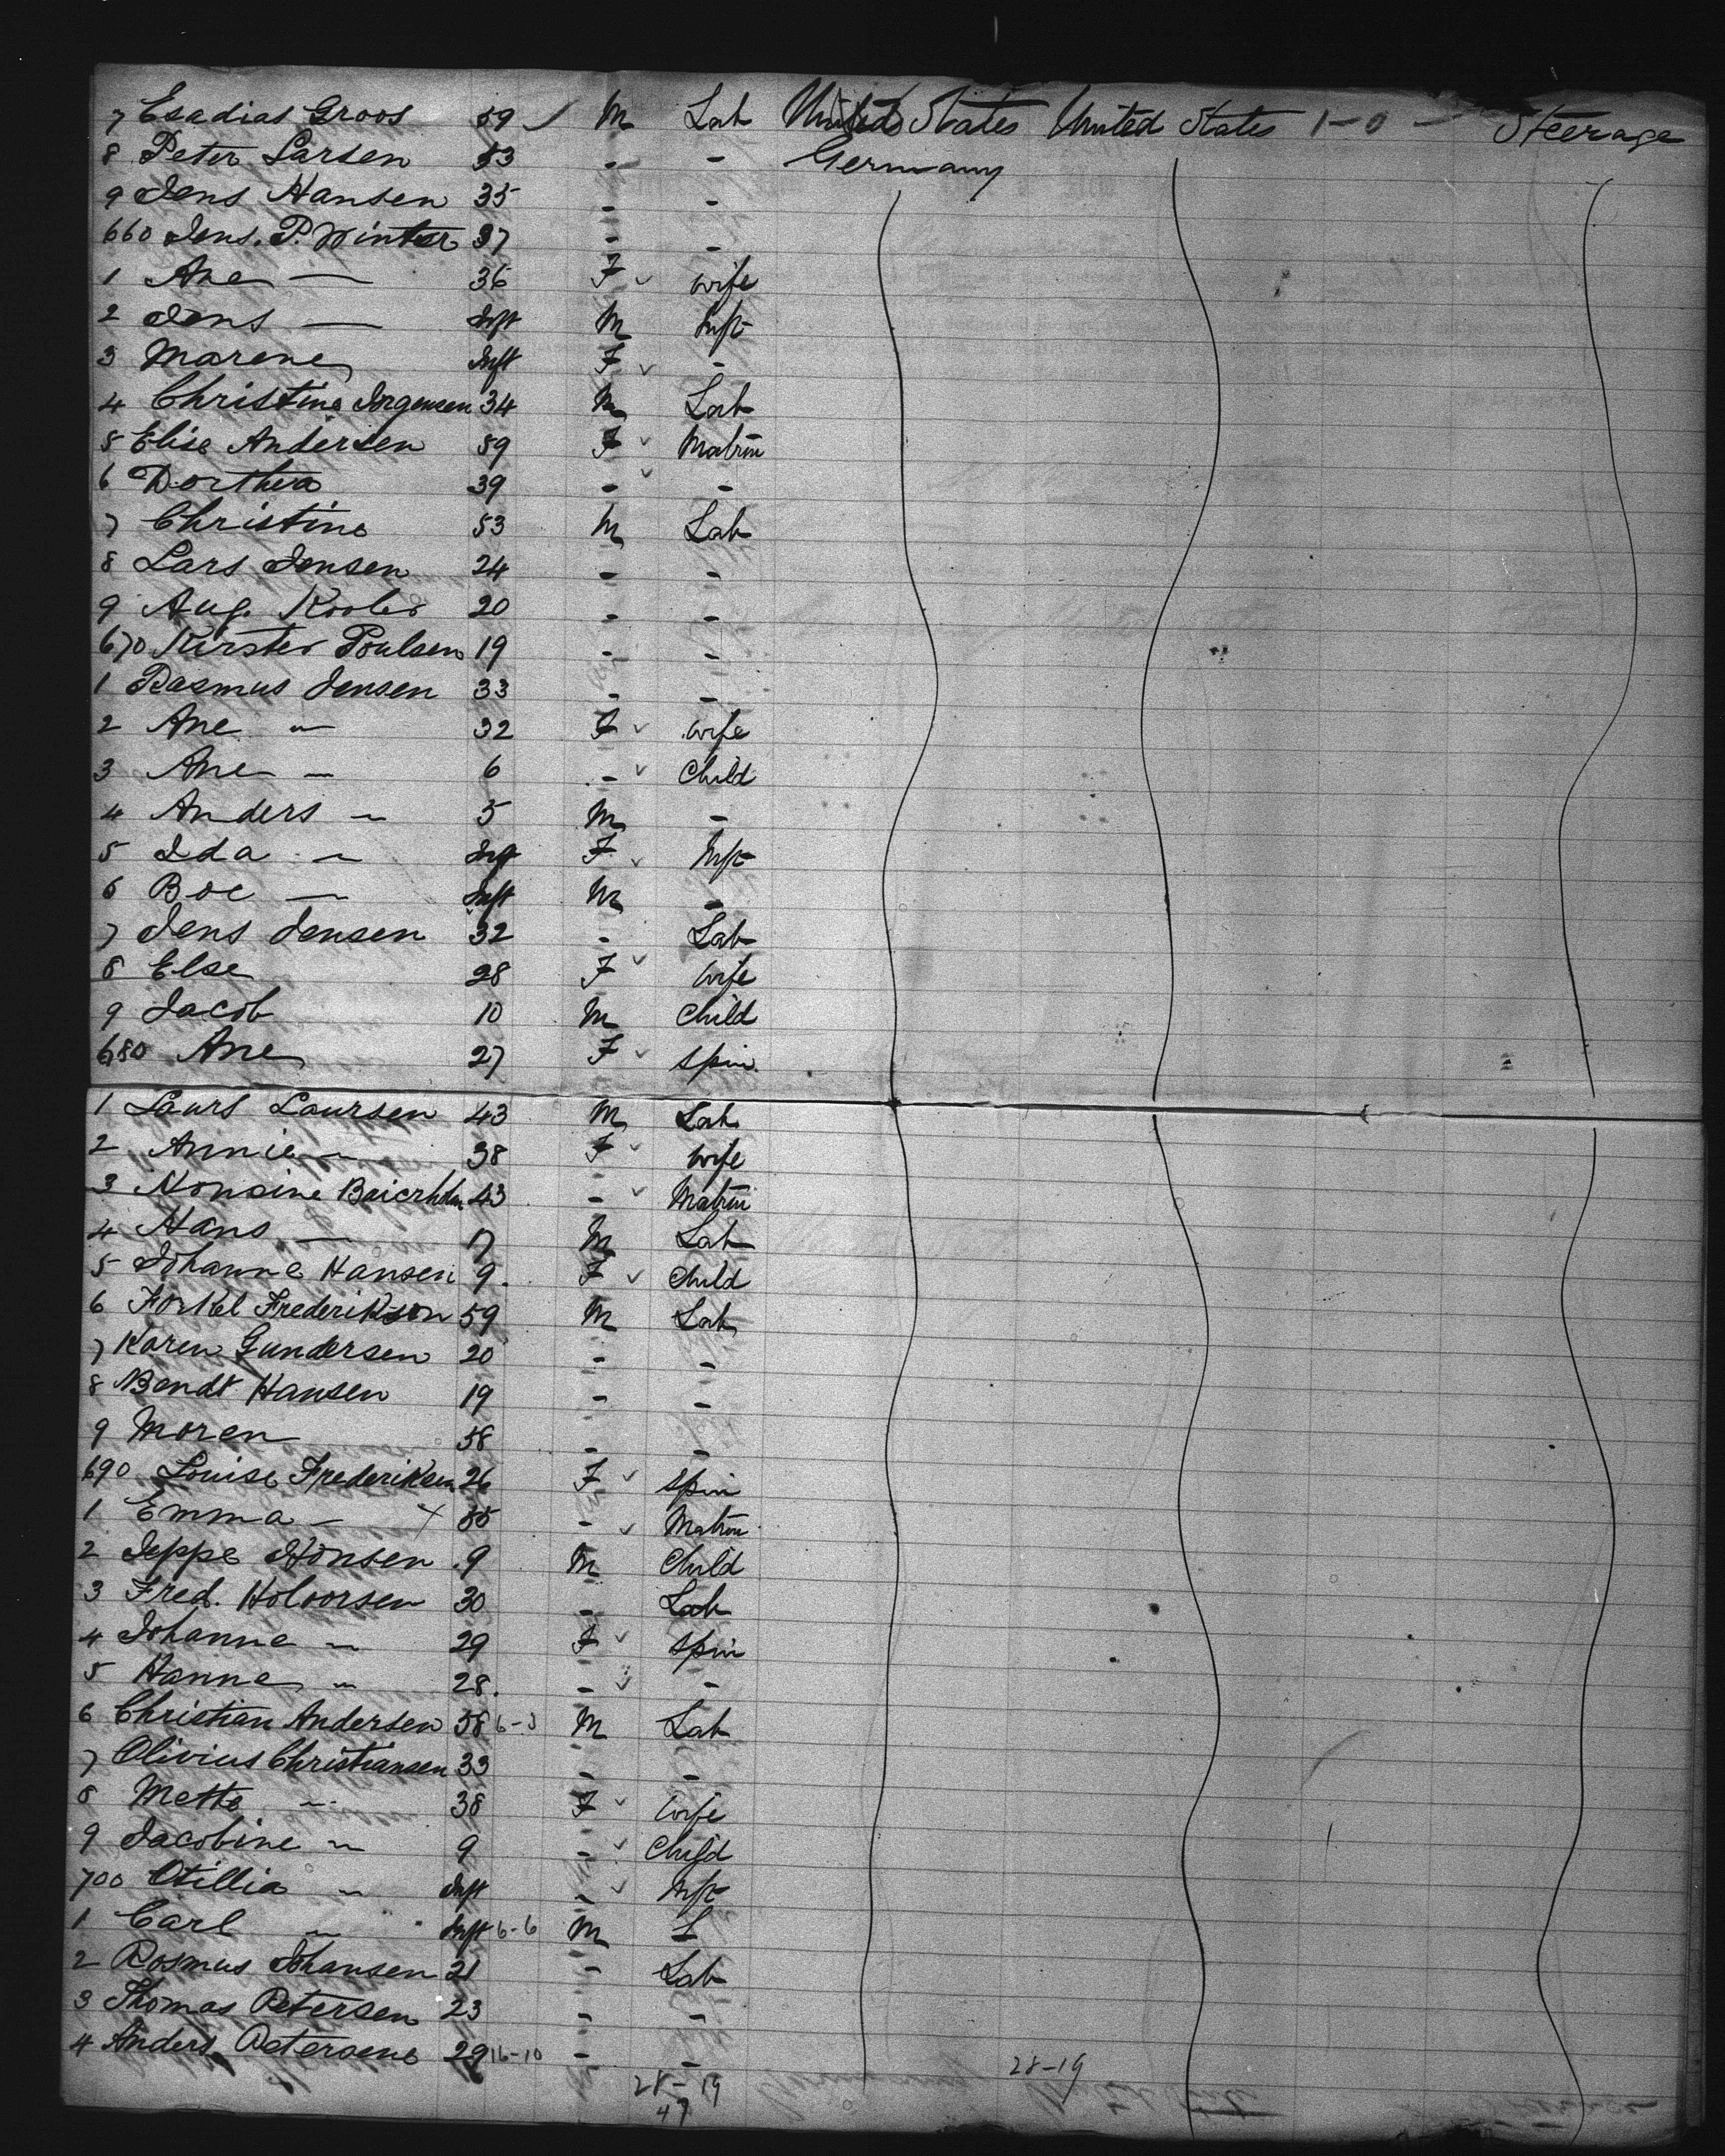 7 Esadias Groos 59 ✓ M Lab United States United States 1-0 - Steerage
8 Peter Larsen 53 - - Germany
9 Jens Hansen 35 - -
660 Jens. P. Winter 37 - -
1 Ane — 36 F ✓ wife
2 Jens — Inft M Inft
3 Marene Inft F ✓ -
4 Christine Jorgensen 34 M Lab
5 Elise Andersen 59 F ✓ Matron
6 Dorthea 39 - ✓ -
7 Christine 53 M Lab
8 Lars Jensen 24 - -
9 Aug. 20 - -
670 Poulsen 19 - -
1 Rasmus Jensen 33 - -
2 Ane " 32 F ✓ wife
3 Ane - 6 - ✓ Child
4 Anders " 5 M -
5 Ida " Inft F ✓ Inft
6 Boe — Inft M -
7 Jens Jensen 32 - Lab
8 Else 28 F ✓ wife
9 Jacob 10 M Child
680 Ane 27 F ✓ Spin.
1 Laurs Laursen 43 M Lab
2 Annie " 38 F ✓ wife
3 43 - ✓ Matron
4 Hans — 17 M Lab
5 Johanne Hansen 9. F ✓ Child
6 Frederikson 59 M Lab
7 Karen Gundersen 20 - -
8 Bendt Hansen 19 - -
9 Moren 58 - -
690 Louise Frederiksen 26 F ✓ Spin
1 Emma - x 55 - ✓ Matron
2 Jeppe 9 M Child
3 Fred. Holvorsen 30 - Lab
4 Johanne " 29 F ✓ Spin
5 Hanne " 28. - ✓ -
6 Christian Andersen 58 6-3 M Lab
7 Olivius Christiansen 33 - -
8 Mette " 38 F ✓ wife
9 Jacobine " 9 - ✓ Child
700 Otillia " Inft - ✓ Inft
1 Carl " Inft 6-6 M
2 Rosmus Johansen 21 - Lab
3 Thomas Petersen 23 - -
4 Anders Petersene 29 16-10 - -
28-19 28-19
47